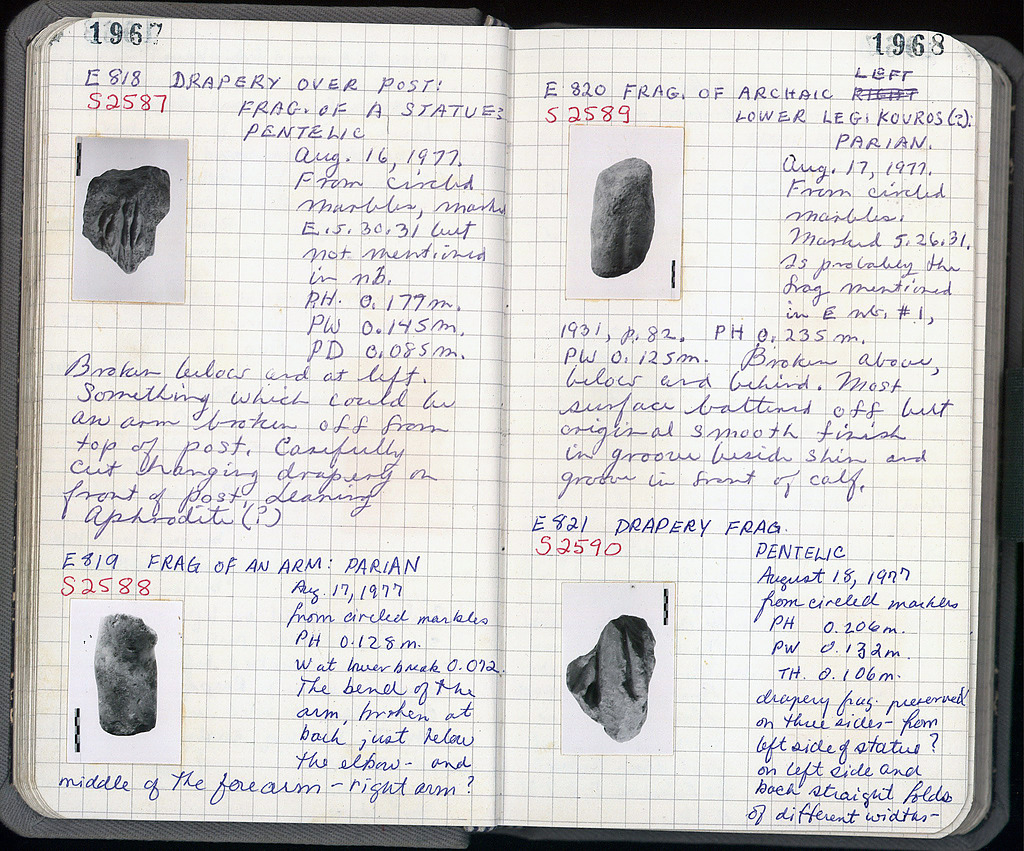 1967
E 818 DRAPERY OVER POST:
S2587 FRAG. OF A STATUE:
PENTELIC
Aug. 16, 1977.
From circled
marbles, marked
E.5.30.31 but
not mentioned
in nb.
PH. 0.179m.
PW 0.145m.
PD 0.085m.
Broken below and at left.
Something which could be
an arm broken off from
top of post. Carefully
cut hanging drapery on
front of post. Leaning
Aphrodite (?)
E 819 FRAG OF AN ARM: PARIAN
S2588 Aug. 17, 1977
from circled marbles
PH 0.128m.
W at lower break 0.072.
The bend of the
arm, broken at
back, just below
the elbow - and
middle of the forearm - right arm?
1968
LEFT
E 820 FRAG. OF ARCHAIC RIGHT
S2589 LOWER LEG: KOUROS(?):
PARIAN.
Aug. 17, 1977.
From circled
marbles.
Marked 5.26.31.
Is probably the
frag mentioned
in E nb. #1,
1931, p. 82. PH 0.235 m.
PW 0.125m. Broken above,
below and behind. Most
surface battered off but
original smooth finish
in groove beside shin and
groove in front of calf.
E 821 DRAPERY FRAG.
S2590
PENTELIC
August 18, 1977
from circled marbles
PH 0.206m.
PW 0.132m.
TH. 0.106m.
drapery frag preserved
on three sides - from
left side of statue?
on left side and
back straight folds
of different widths -